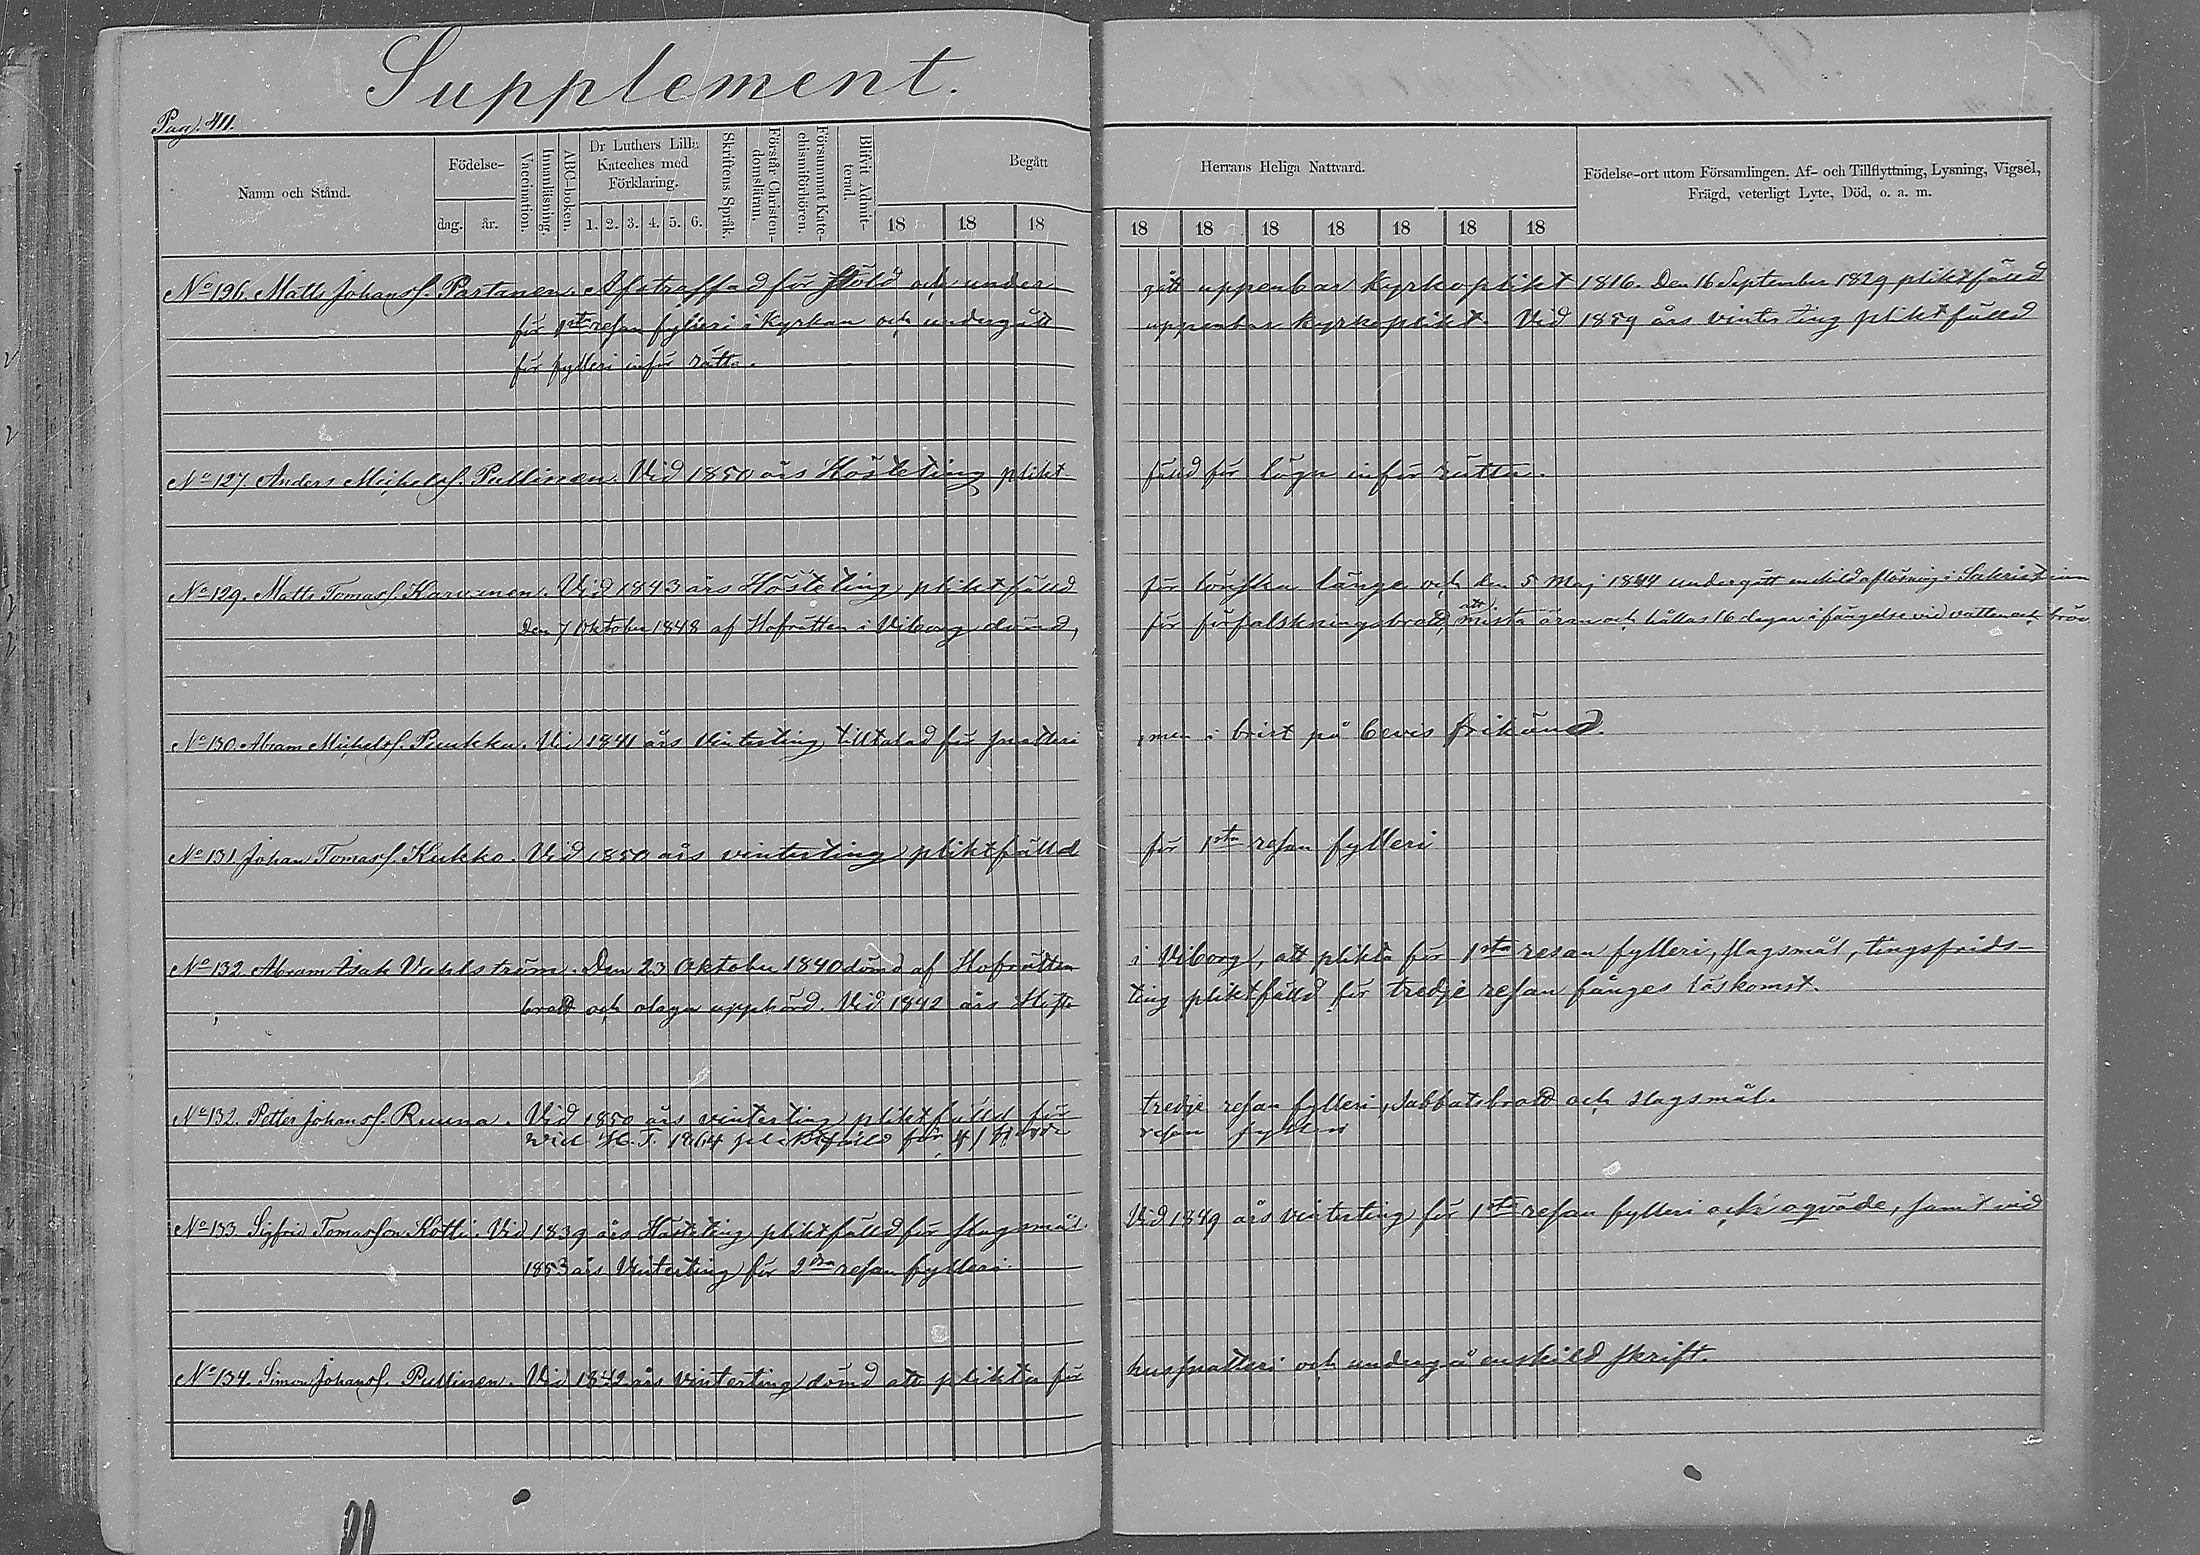 Supplement.
Pag. 411.
Namn och Stånd.
Födelse-
dag. år.
Vaccination.
Innanläsning.
ABC-boken.
Dr Luthers Lilla
Kateches med
Förklaring.
1. 2. 3. 4. 5. 6.
Skriftens Språk.
Förstår Christen-
domsläran.
Försummat Kate-
chismiförhören.
Blifvit Admit-
terad.
Begått
18 18 18
Herrans Heliga Nattvard.
18 18 18 18 18 18 18
Födelse-ort utom Församlingen, Af- och Tillflyttning, Lysning, Vigsel,
Frägd, veterligt Lyte, Död, o. a. m.
No 126. Matts Johanss. Partanen. Afstraffad för stöld och under-
gått uppenbar kyrkoplikt 1816. Den 16 September 1829 pliktfälld
för 1sta resan fylleri i Kyrkan och undergått
uppenbar kyrkoplikt. Vid 1859 års vinter ting pliktfälld
för fylleri inför rätta.
No 127. Anders Michelss. Pullinen. Vid 1850 års Hösteting plikt-
fälld för lögn inför rätta.
No 129. Matts Tomass. Karvinen. Vid 1843 års Hösteting pliktfälld
för lönska läge och den 5 Maj 1844 undergått enskild aflösning i Sakristian
Den 7 Oktober 1848 af Hofrätten i Viborg dömd,
för förfalskningsbrott, att mista äran och hållas 16 dagar i fängelse vid vatten och bröd
No 130. Abram Michelss. Puukka. Vid 1841 års Vinterting tilltalad för snatteri
, men i brist på bevis frikänd.
No 131. Johan Tomass. Kukko. Vid 1850 års vinterting pliktfälld
för 1sta resan fylleri
No 132. Abram Isak Vahlström. Den 23 Oktober 1840 dömd af Hofrätten
i Viborg, att plikta för 1sta resan fylleri, slagsmål, tingsfrids-
brott och olaga uppbörd. Vid 1842 års Höste
ting pliktfälld för tredje resan fånges löskomst.
No 132. Petter Johanss. Ruuna. Vid 1850 års vinterting pliktfälld för
tredje resan fylleri, Sabbatsbrott och slagsmål.
vid H. T. 1864 pliktfälld för
resan fylleri
No 133. Sigfrid Tomasson Kotti. Vid 1839 års Hösteting pliktfälld för slagsmål.
Vid 1849 års vinterting för 1sta resan fylleri och oqväde, samt vid
1853 års Vinterting för 2dra resan fylleri.
No 134. Simon Johanss. Pullinen. Vid 1842 års Vinterting dömd att plikta för
hussnatteri och undergå enskild skrift.